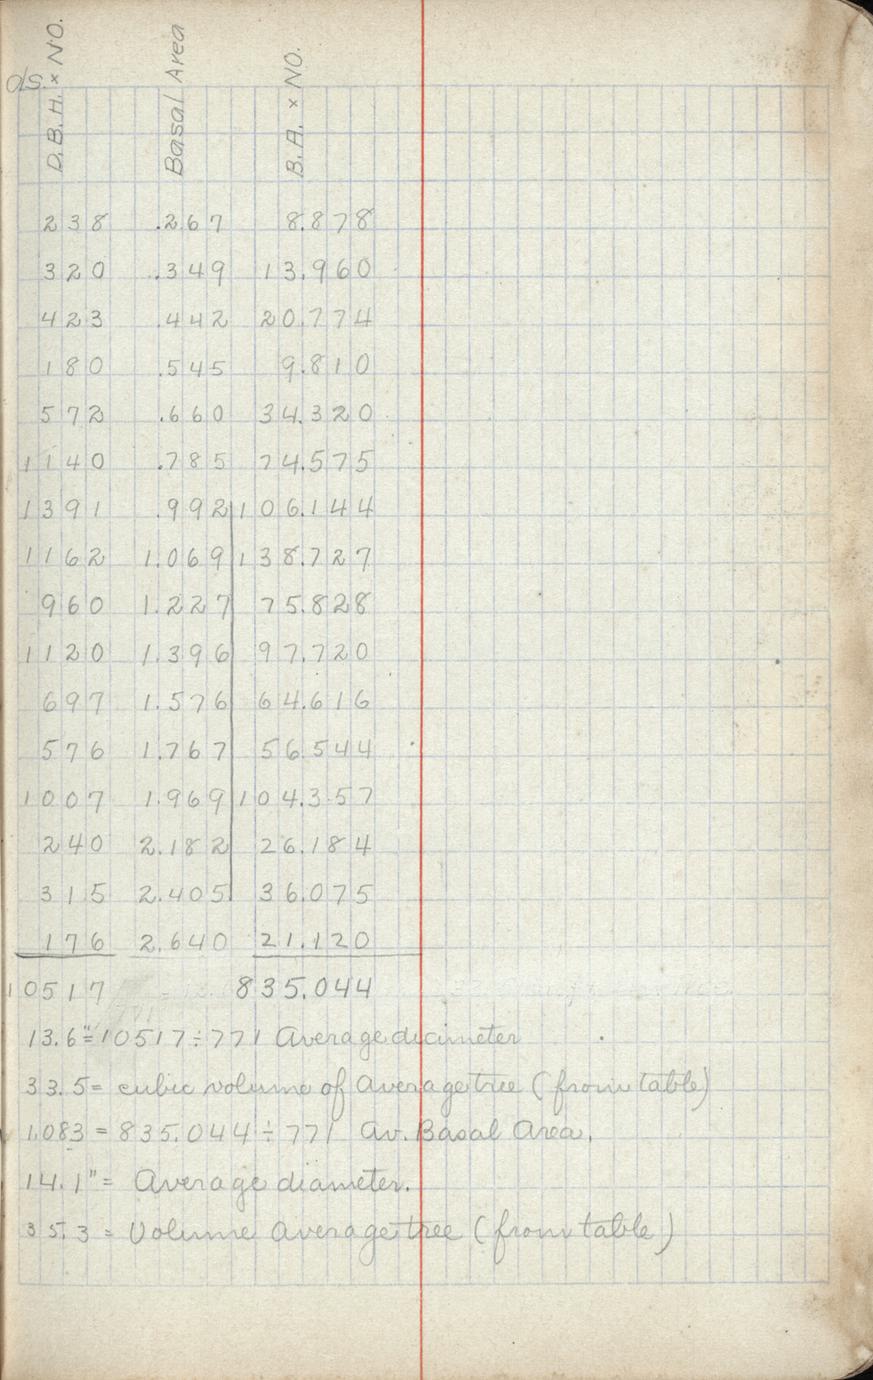 ds.
D.B.H. × NO. Basal Area B.A. × NO.
238 .267 8.878
320 .349 13.960
423 .442 20.774
180 .545 9.810
572 .660 34.320
1140 .785 74.575
1391 .992 106.144
1162 1.069 138.727
960 1.227 75.828
1120 1.396 97.720
697 1.576 64.616
576 1.767 56.544
1007 1.969 104.357
240 2.182 26.184
315 2.405 36.075
176 2.640 21.120
10517 835.044
13.6" = 10517 ÷ 771 Average diameter
33.5 = cubic volume of Average tree (from table)
1.083 = 835.044 ÷ 771 Av. Basal Area.
14.1" = Average diameter.
35.3 = Volume Average tree (from table)